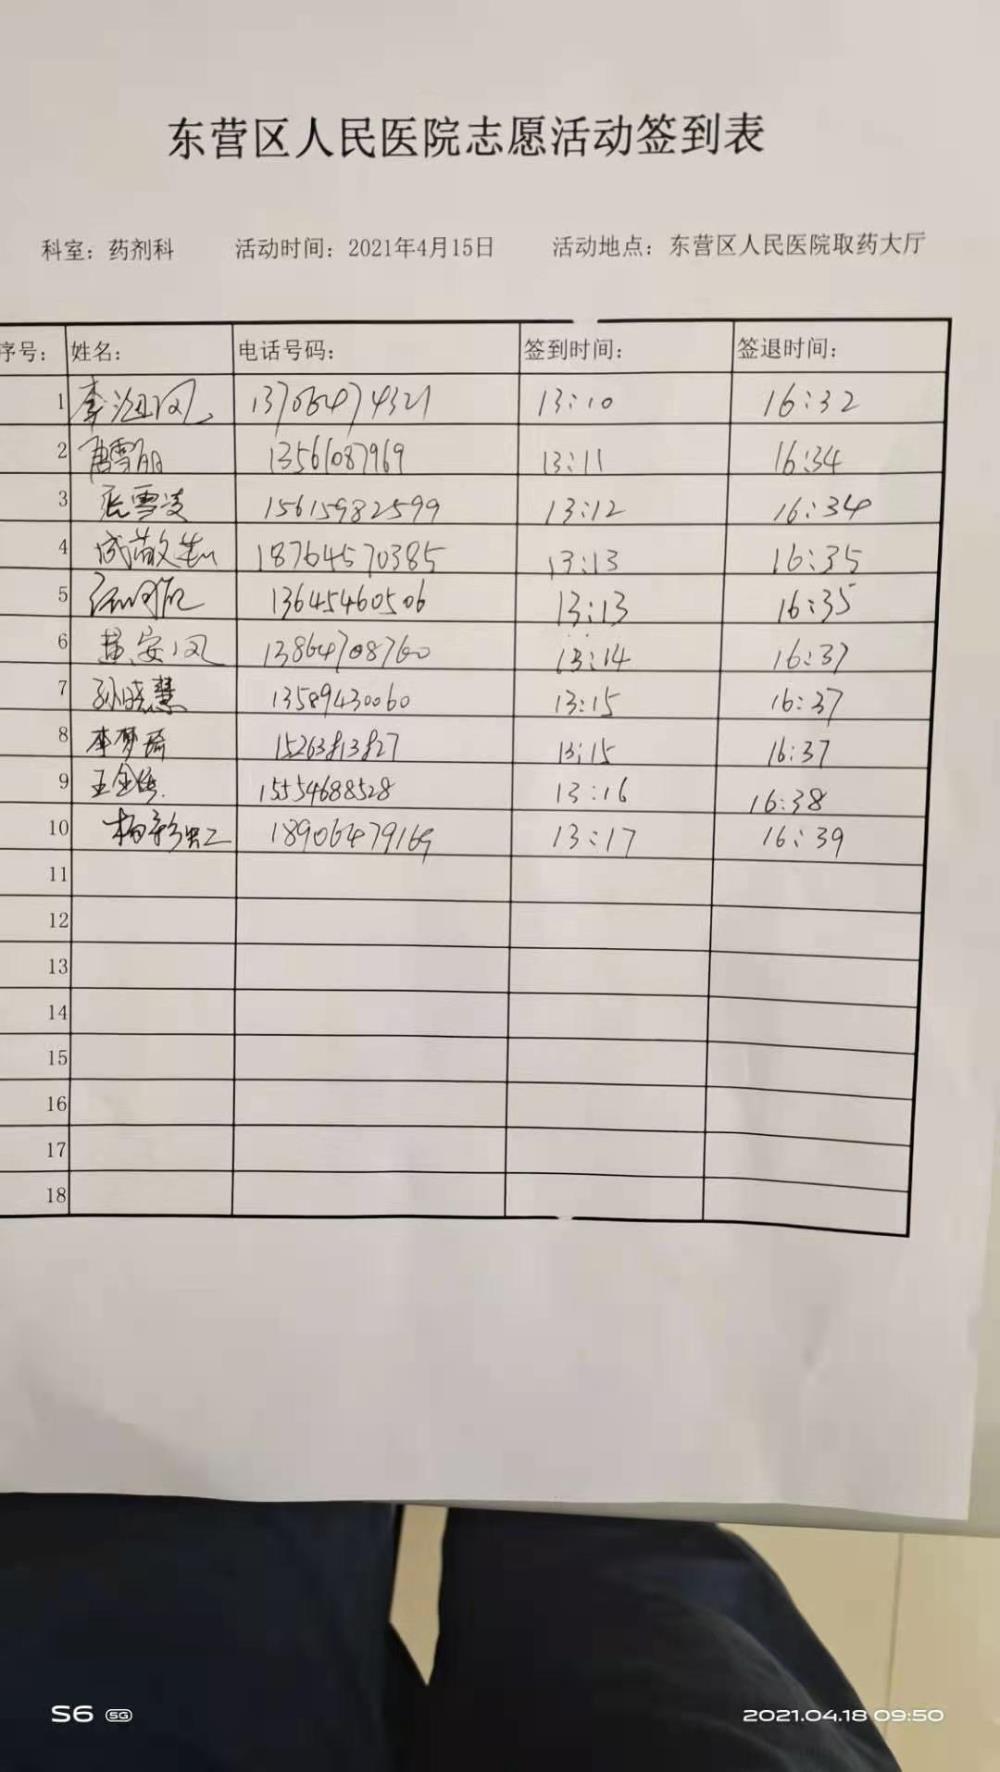 东营区人民医院志愿活动签到表
科室：药剂科 活动时间：2021年4月15日 活动地点：东营区人民医院取药大厅
序号： 姓名： 电话号码： 签到时间： 签退时间：
1 13706474321 13:10 16:32
2 唐雪丽 13561087969 13:11 16:34
3 张雪凌 15615982599 13:12 16:34
4 18764570385 13:13 16:35
5 13645460506 13:13 16:35
6 13864708760 13:14 16:37
7 孙晓慧 13589430060 13:15 16:37
8 李梦琦 15263813827 13:15 16:37
9 15554688528 13:16 16:38
10 杨彩虹 18906479169 13:17 16:39
11
12
13
14
15
16
17
18
S6 5G 2021.04.18 09:50